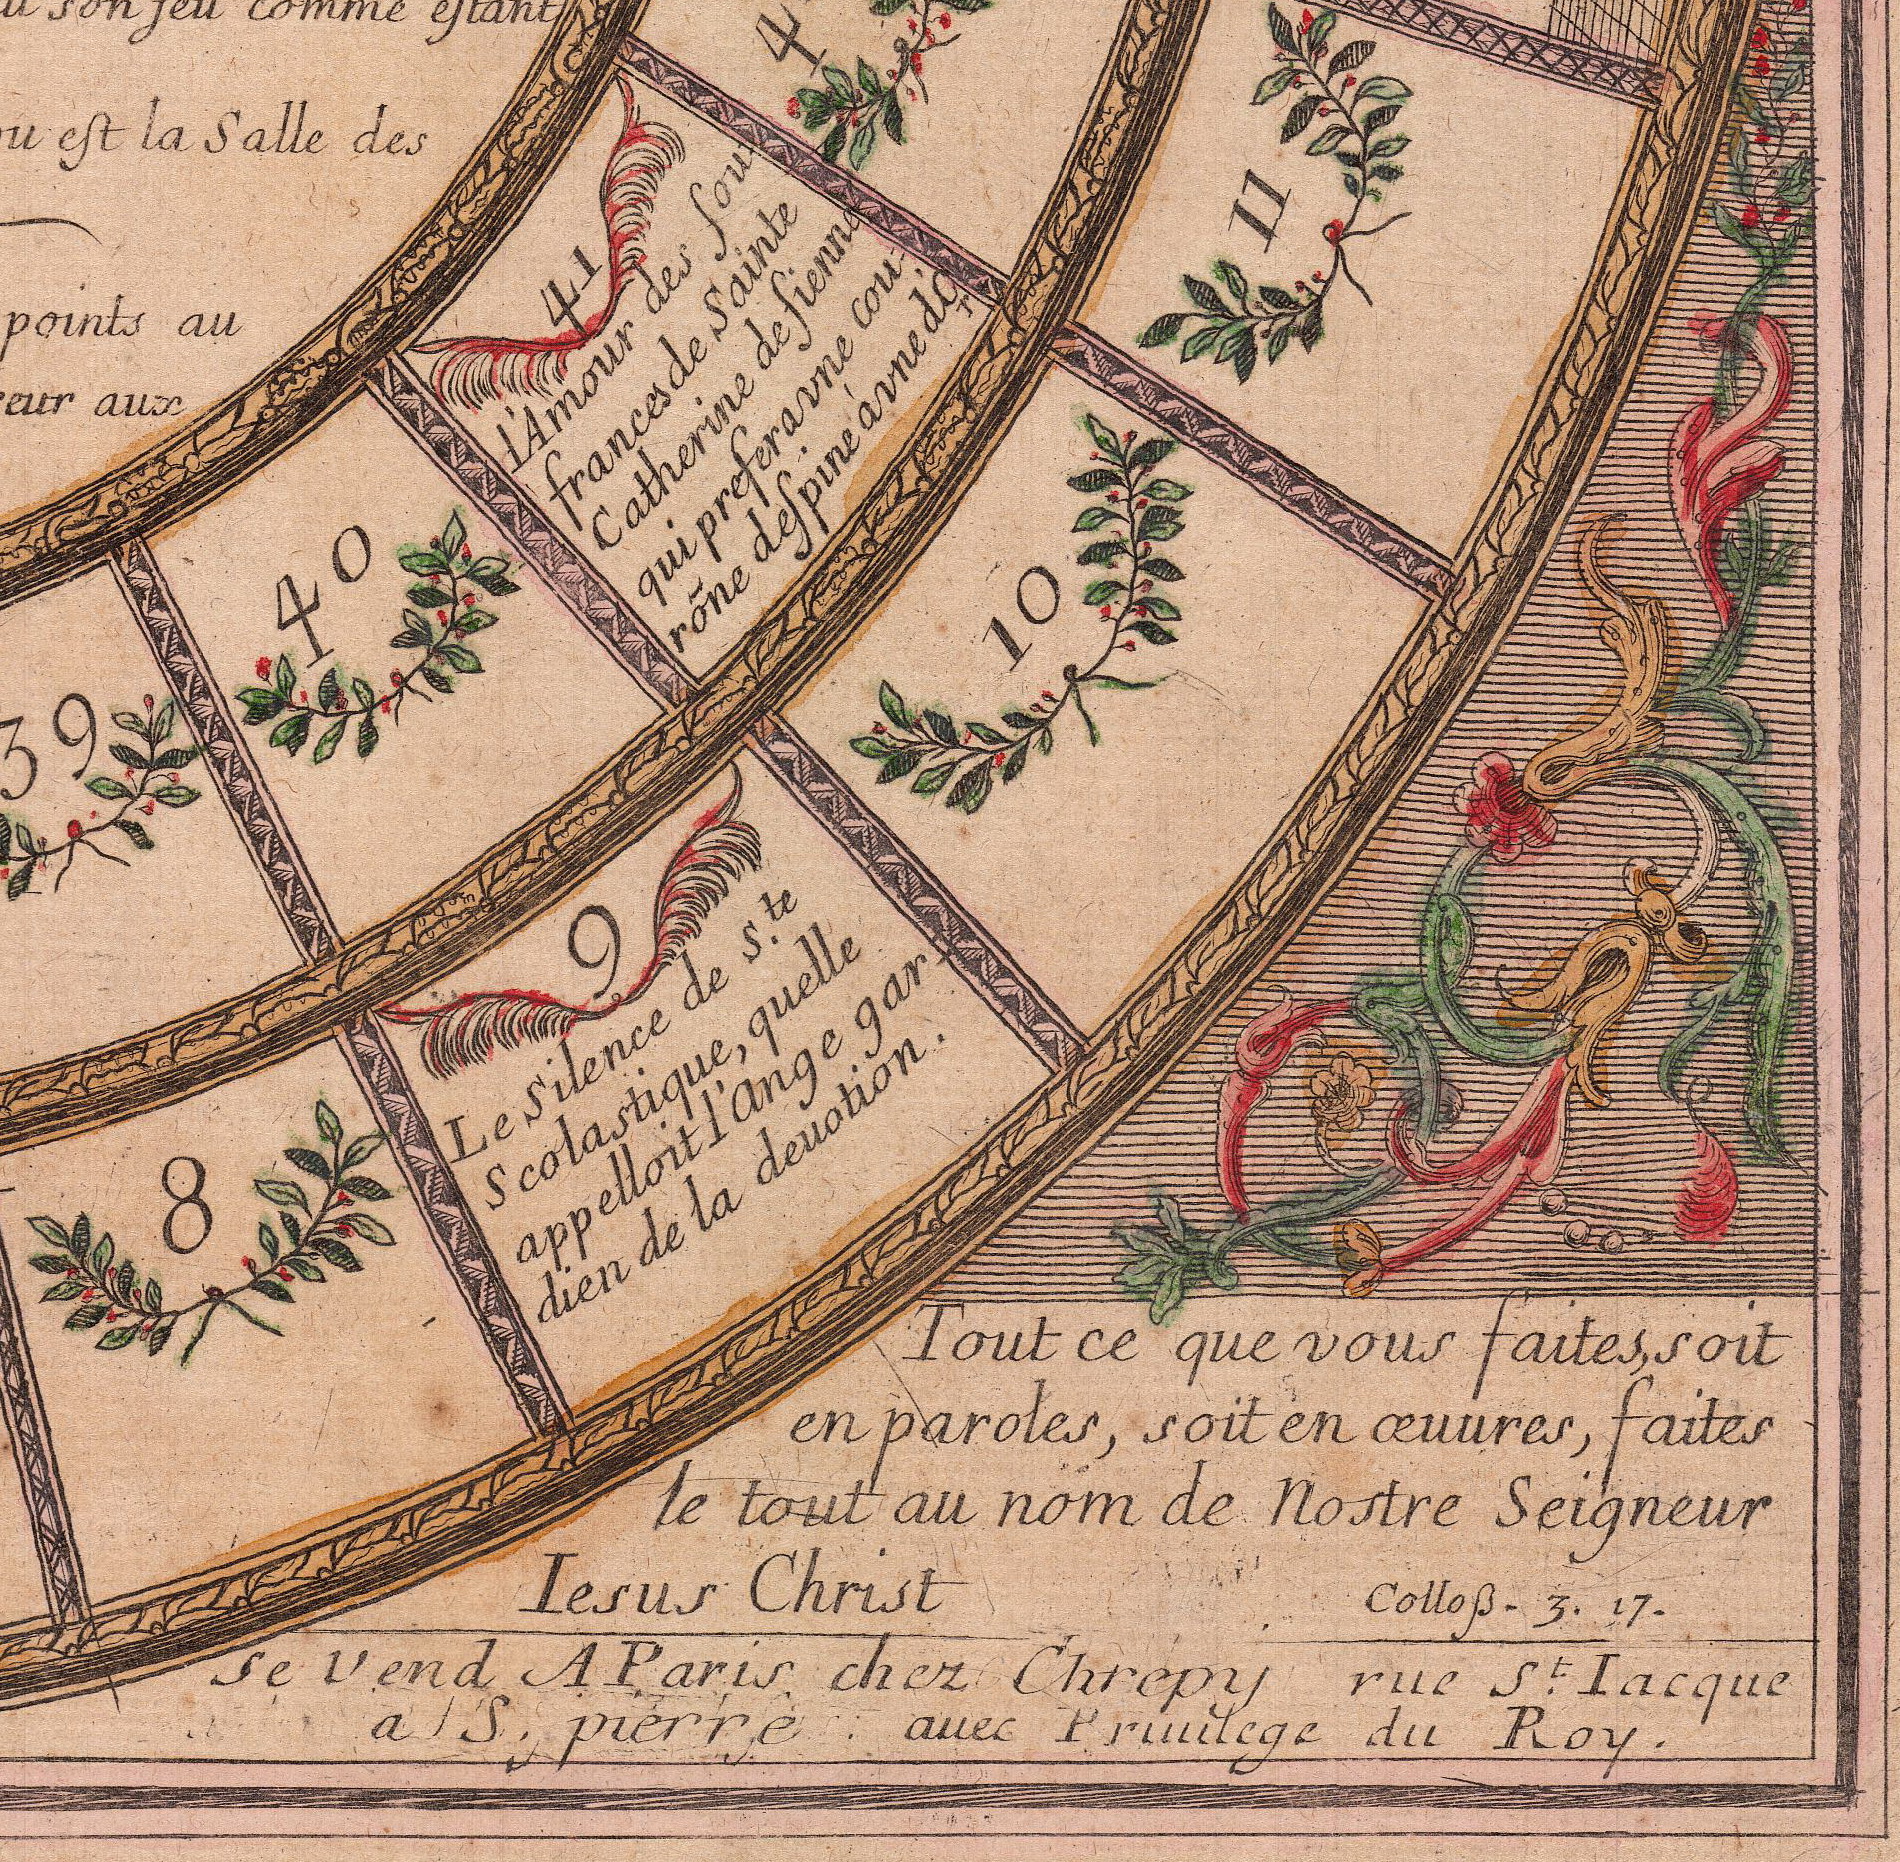 son feu comme estant
ou est la Salle des
points au
aux
4
11
41
l'Amour des souf
frances de Sainte
Catherine de sienne
qui prefera vne cou-
rõne despine à vne dor
40
10
39
9
Le silence de S.te
Scolastique, quelle
appelloit l'Ange gar-
dien de la deuotion.
8
Tout ce que vous faites, soit
en paroles, soit en œuures, faites
le tout au nom de Nostre Seigneur
Iesus Christ Colloß. 3. 17.
se vend A Paris chez Chrepy rue St. Iacque
a S. pierre auec Priuilege du Roy.